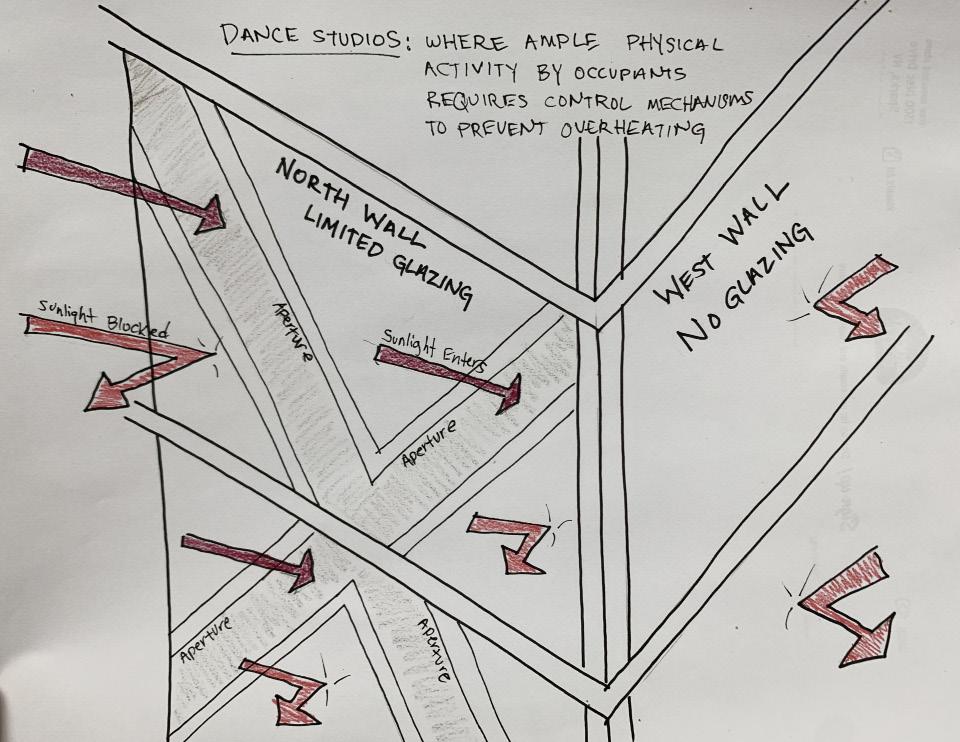 DANCE STUDIOS: WHERE AMPLE PHYSICAL
ACTIVITY BY OCCUPANTS
REQUIRES CONTROL MECHANISMS
TO PREVENT OVERHEATING
NORTH WALL
LIMITED GLAZING
WEST WALL
NO GLAZING
Aperture
Sunlight Blocked
Sunlight Enters
Aperture
Aperture
Aperture